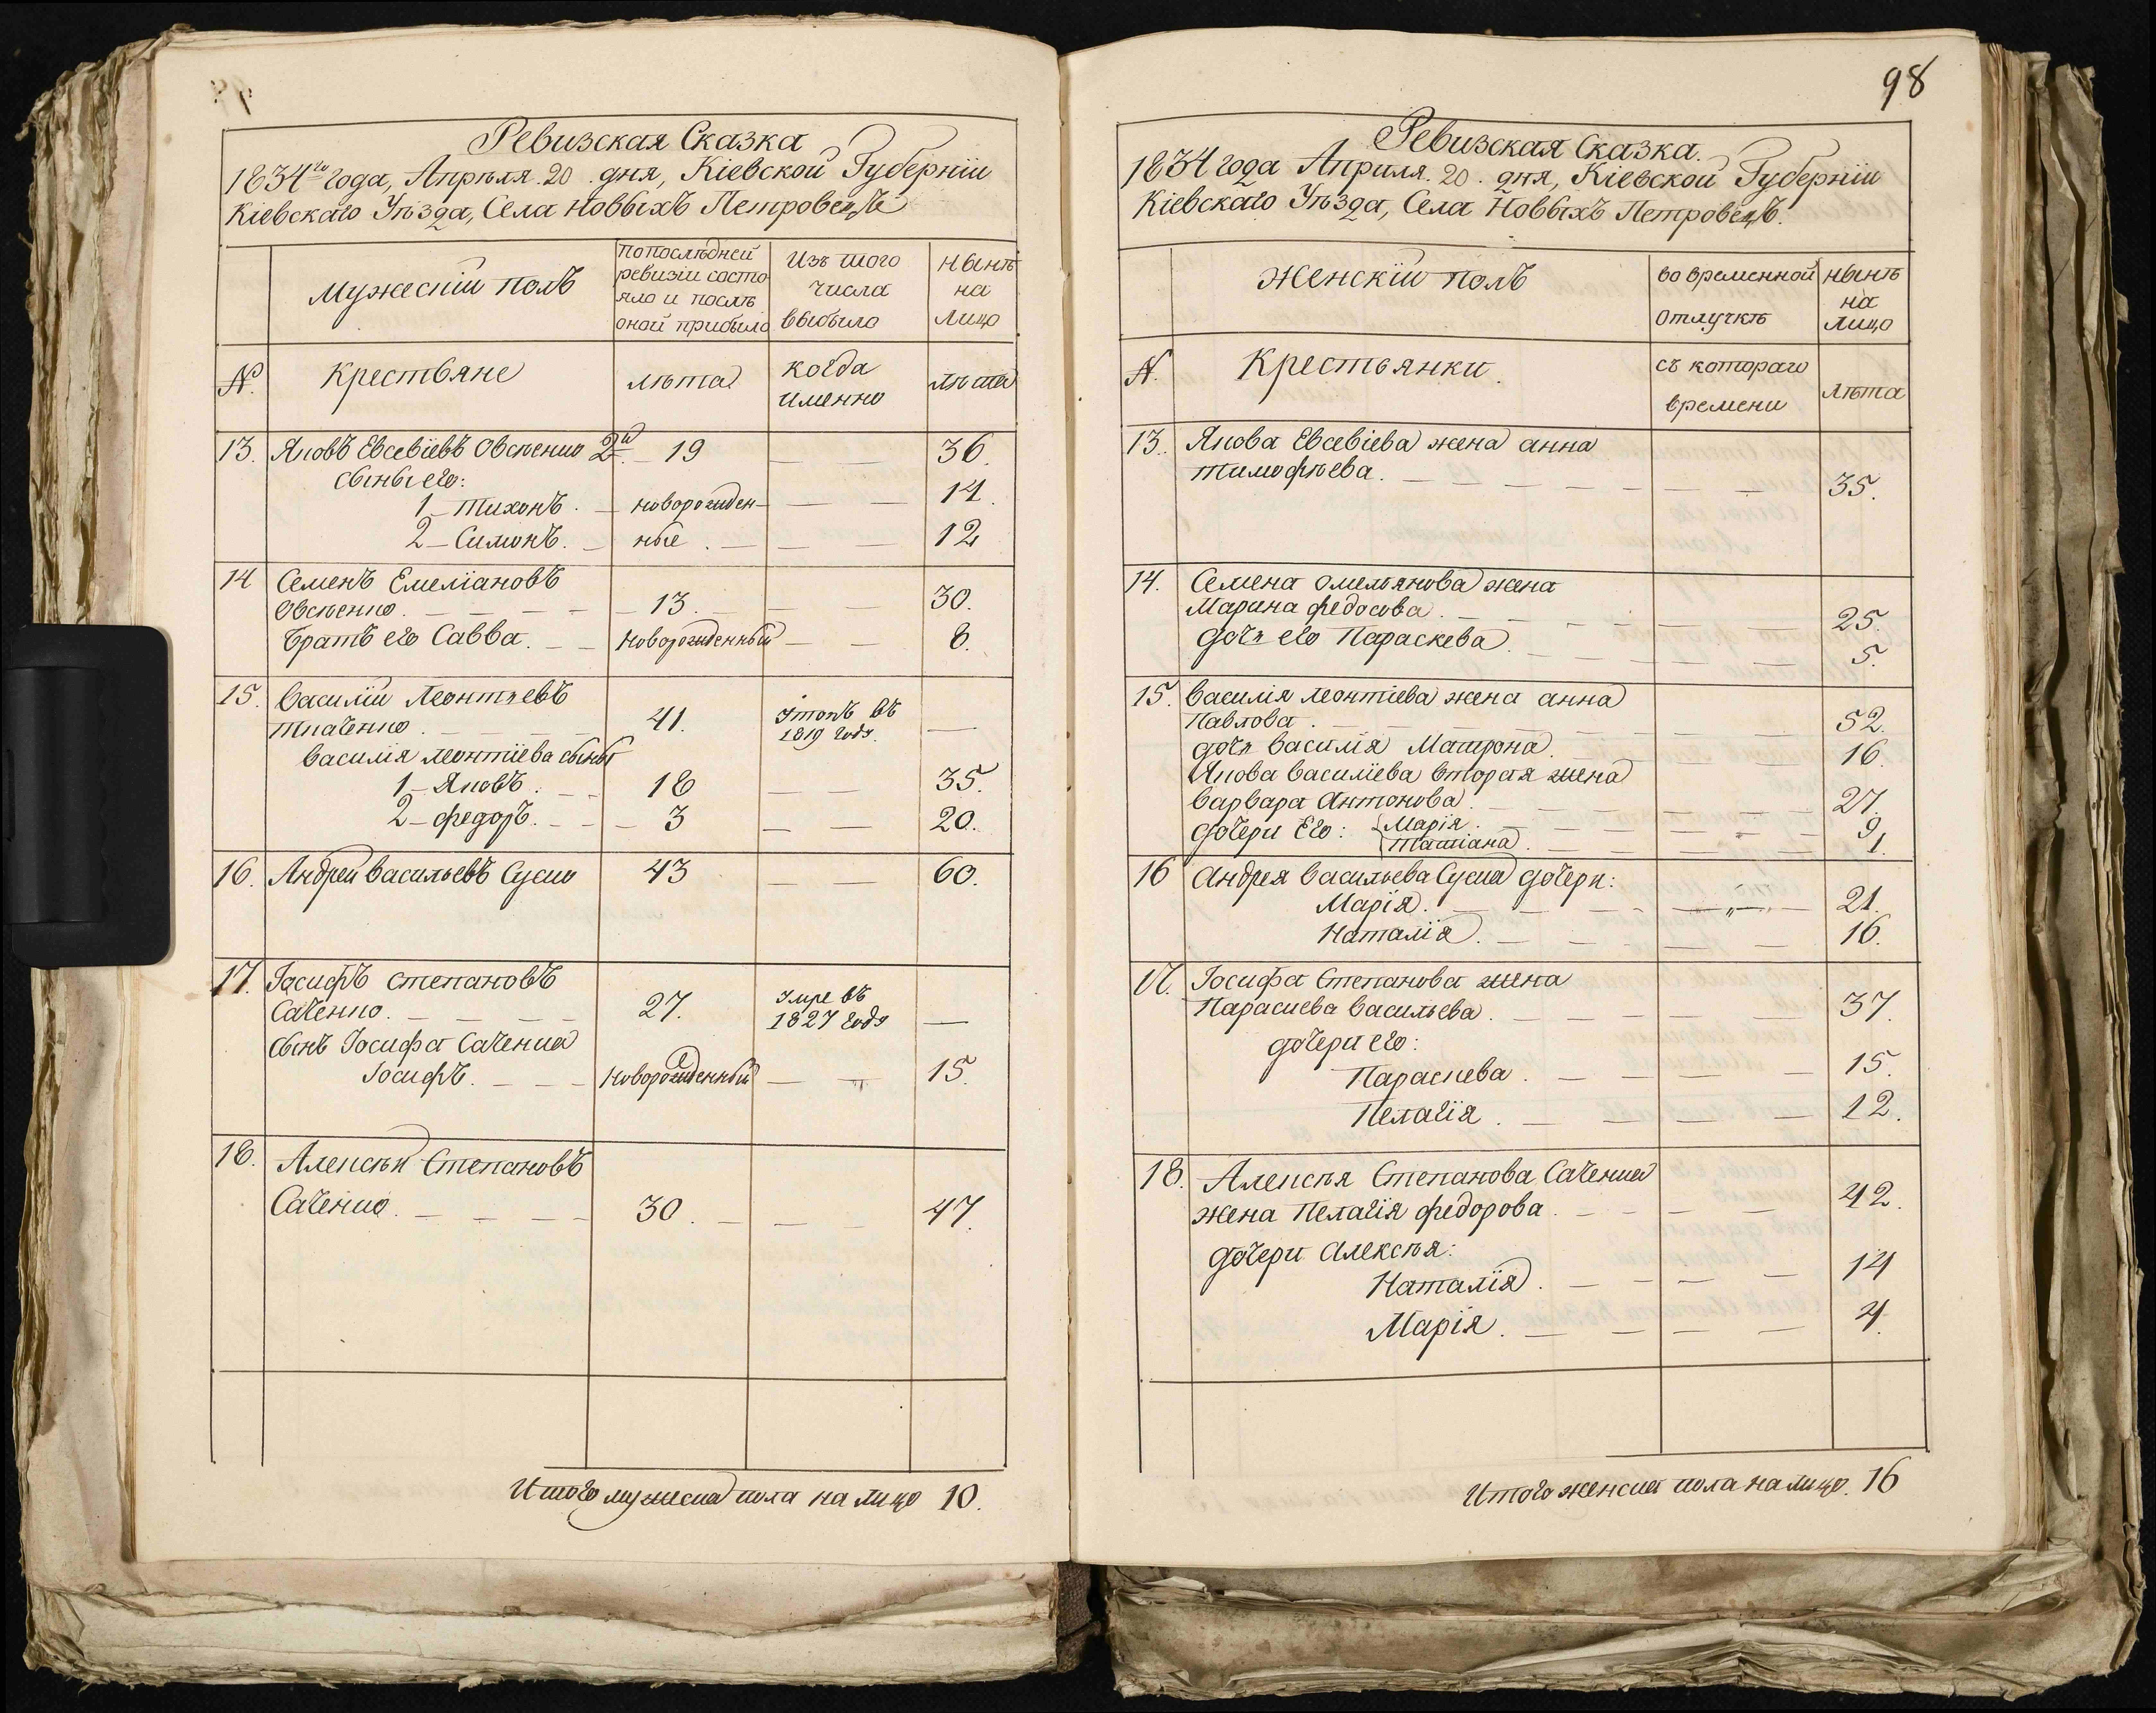 Ревизская Сказка
1834го года, Апрѣля 20 дня, Кіевской Губерніи
Кіевскаго Уѣзда, Села Новыхъ Петровецъ
Мужескій полъ
по послѣдней ревизіи состояло и послѣ оной прибыло
Изъ того числа выбыло
Нынѣ на лицо
№
Крестьяне
лѣта
когда именно
лѣта
13. Яковъ Евсевіевъ Овсѣенко 2й — 19 — — 36.
сыны его:
1 — Тихонъ. — новорожден- — — 14.
2 — Симонъ. — ные. — — — 12
14 Семенъ Емеліановъ
Овсѣенко. — — — — 13. — — 30.
братъ его Савва. — — Новорожденный — — 8.
15. Василій Леонтьевъ
Ткаченко. — — — 41. въ 1819 годѣ. —
Василія Леонтіева сыны
1 — Яковъ. — — 18 — — 35.
2 — Федоръ. — — — 3 — — 20.
16. Андрей Васильевъ Суско 43 — — 60.
17. Іосифъ Степановъ
Саченко. — — — — 27. Умре въ 1827 годѣ —
сынъ Іосифа Саченка
Іосифъ. — — — Новорожденный — — 15.
18. Алексѣй Степановъ
Саченко. — — — — 30. — — — 47.
Итого мужеска пола на лицо 10.
98
Ревизская Сказка.
1834 года Априля. 20. дня, Кіевской Губерніи
Кіевскаго Уѣзда, Села Новыхъ Петровецъ.
Женскій полъ
во временной отлучкѣ
Нынѣ на лицо
№.
Крестьянки.
съ котораго времени
лѣта
13. Якова Евсевіева жена Анна
Тимофѣева. — — — — — — — 35.
14. Семена Омельянова жена
Марина Федосова. — — — — — — 25.
дочь его Параскева. — — — — — 5.
15. Василія Леонтіева жена Анна
Павлова. — — — — — — — 52.
дочь Василія Матрона. — — — — 16.
Якова Василіева вторая жена
Варвара Антонова. — — — — — 27.
дочери Его: Марія. — — — — — — 9
Татіана. — — — — — 1.
16 Андрея Васильева Суска дочери:
Марія. — — — — — „ — — 21.
Наталія. — — — — — 16.
17. Іосифа Степанова жена
Параскева Васильева. — — — — — 37.
дочери его:
Параскева. — — — — — 15.
Пелагія. — — — — 12.
18. Алексѣя Степанова Саченка
жена Пелагія Федорова. — — — — — 42.
дочери Алексѣя:
Наталія. — — — — — 14
Марія. — — — — 4.
Итого женска пола на лицо. 16